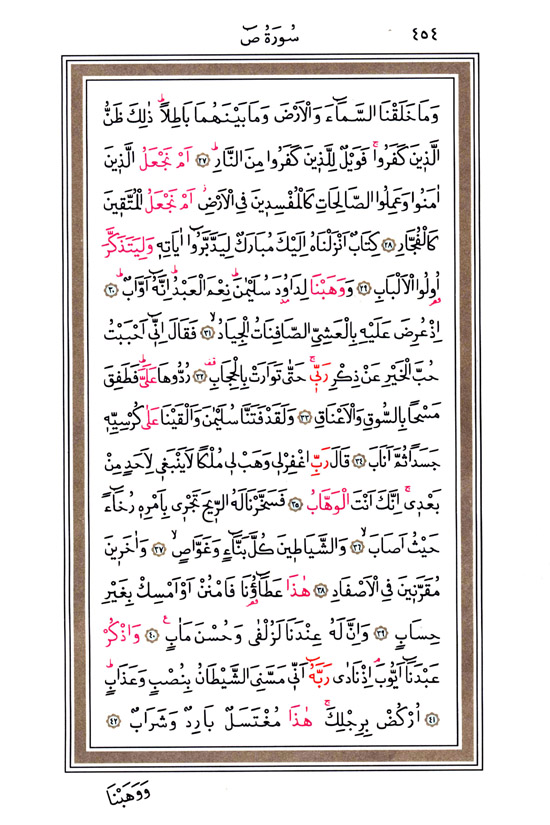 ٤٥٤ سُورَةُ صٓ
وَمَا خَلَقْنَا السَّمَٓاءَ وَالْاَرْضَ وَمَا بَيْنَهُمَا بَاطِلاًۜ ذٰلِكَ ظَنُّ
الَّذ۪ينَ كَفَرُواۚ فَوَيْلٌ لِلَّذ۪ينَ كَفَرُوا مِنَ النَّارِۜ ﴿٢٧﴾ اَمْ نَجْعَلُ الَّذ۪ينَ
اٰمَنُوا وَعَمِلُوا الصَّالِحَاتِ كَالْمُفْسِد۪ينَ فِي الْاَرْضِۘ اَمْ نَجْعَلُ الْمُتَّق۪ينَ
كَالْفُجَّارِ ﴿٢٨﴾ كِتَابٌ اَنْزَلْنَاهُ اِلَيْكَ مُبَارَكٌ لِيَدَّبَّرُٓوا اٰيَاتِه۪ وَلِيَتَذَكَّرَ
اُو۬لُوا الْاَلْبَابِ ﴿٢٩﴾ وَوَهَبْنَا لِدَاوُ۫دَ سُلَيْمٰنَۜ نِعْمَ الْعَبْدُۜ اِنَّهُٓ اَوَّابٌۜ ﴿٣٠﴾
اِذْ عُرِضَ عَلَيْهِ بِالْعَشِيِّ الصَّافِنَاتُ الْجِيَادُۙ ﴿٣١﴾ فَقَالَ اِنّ۪ٓي اَحْبَبْتُ
حُبَّ الْخَيْرِ عَنْ ذِكْرِ رَبّ۪يۚ حَتّٰى تَوَارَتْ بِالْحِجَابِ۠ ﴿٣٢﴾ رُدُّوهَا عَلَيَّۜ فَطَفِقَ
مَسْحاً بِالسُّوقِ وَالْاَعْنَاقِ ﴿٣٣﴾ وَلَقَدْ فَتَنَّا سُلَيْمٰنَ وَاَلْقَيْنَا عَلٰى كُرْسِيِّه۪
جَسَداً ثُمَّ اَنَابَ ﴿٣٤﴾ قَالَ رَبِّ اغْفِرْ ل۪ي وَهَبْ ل۪ي مُلْكاً لَا يَنْبَغ۪ي لِاَحَدٍ مِنْ
بَعْد۪يۚ اِنَّكَ اَنْتَ الْوَهَّابُ ﴿٣٥﴾ فَسَخَّرْنَا لَهُ الرّ۪يحَ تَجْر۪ي بِاَمْرِه۪ رُخَٓاءً
حَيْثُ اَصَابَۙ ﴿٣٦﴾ وَالشَّيَاط۪ينَ كُلَّ بَنَّٓاءٍ وَغَوَّاصٍۙ ﴿٣٧﴾ وَاٰخَر۪ينَ
مُقَرَّن۪ينَ فِي الْاَصْفَادِ ﴿٣٨﴾ هٰذَا عَطَٓاؤُ۬نَا فَامْنُنْ اَوْ اَمْسِكْ بِغَيْرِ
حِسَابٍ ﴿٣٩﴾ وَاِنَّ لَهُ عِنْدَنَا لَزُلْفٰى وَحُسْنَ مَاٰبٍ۟ ﴿٤٠﴾ وَاذْكُرْ
عَبْدَنَٓا اَيُّوبَۢ اِذْ نَادٰى رَبَّهُٓ اَنّ۪ي مَسَّنِيَ الشَّيْطَانُ بِنُصْبٍ وَعَذَابٍۜ
﴿٤١﴾ اُرْكُضْ بِرِجْلِكَۚ هٰذَا مُغْتَسَلٌ بَارِدٌ وَشَرَابٌ ﴿٤٢﴾
وَوَهَبْنَا